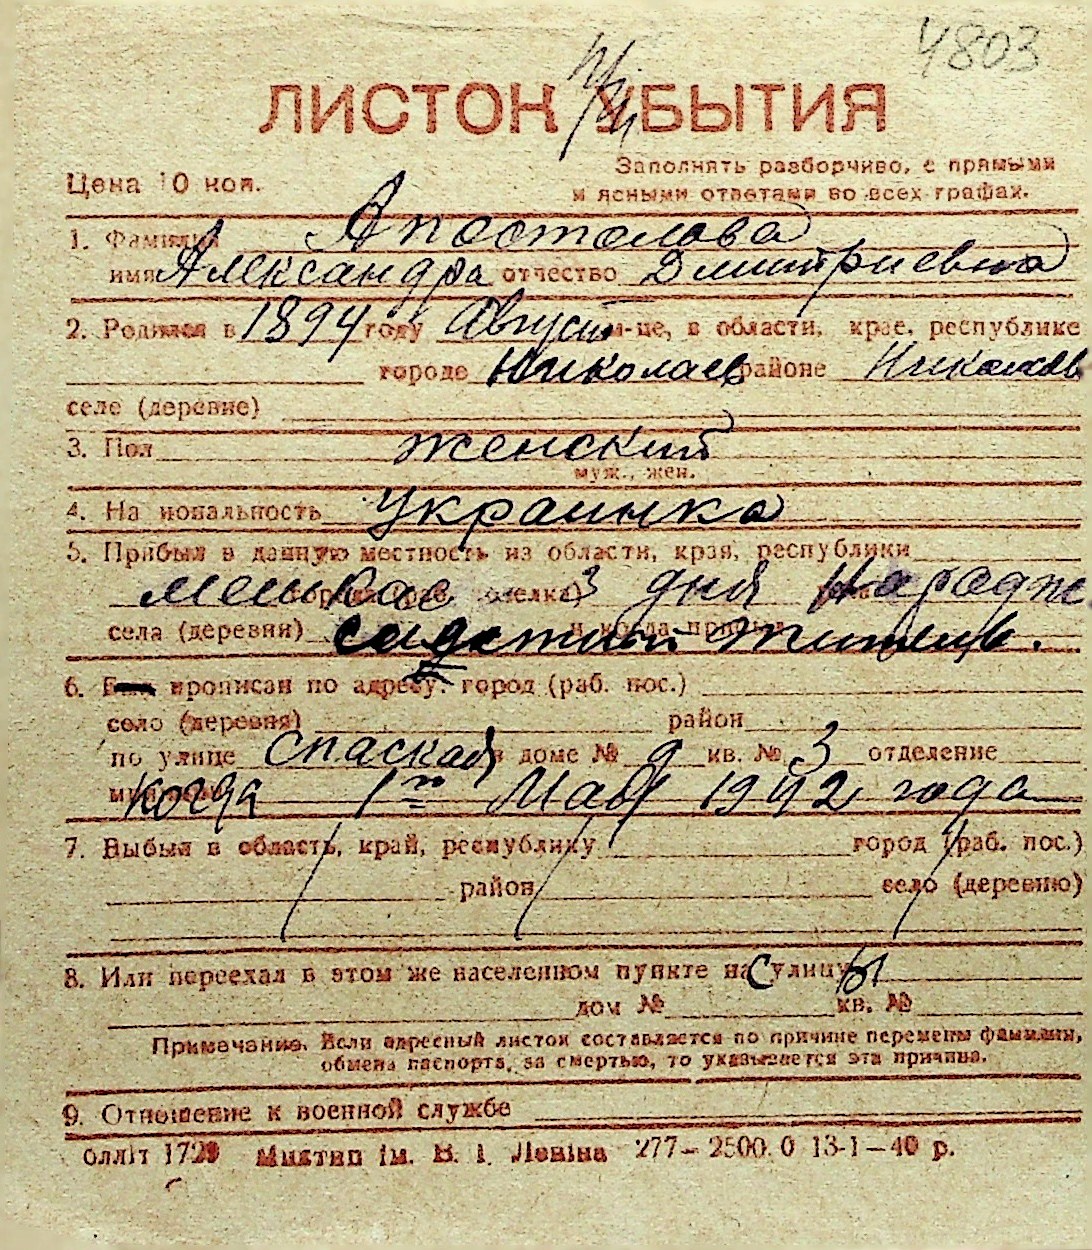 4803
ЛИСТОК УБЫТИЯ
Цена 10 коп.
Заполнять разборчиво, с прямыми
и ясными ответами во всех графах.
1. Фамилия Апостолова
имя Александра отчество Дмитриевна
2. Родился в 1894 году Август м-це, в области, крае, республике
городе Николаев районе Николаев
селе (деревне)
3. Пол женский
муж., жен.
4. Национальность Украинка
5. Прибыл в данную местность из области, края, республики
3 дня
села (деревни) и когда прибыл
6. прописан по адресу: город (раб. пос.)
село (деревня) район
по улице Спаская в доме № 9 кв. № 3 отделение
когда 1го Мая 1942 года
7. Выбыл в область, край, республику город (раб. пос.)
район село (деревню)
8. Или переехал в этом же населенном пункте на С улицу ы
дом № кв. №
Примечание. Если адресный листок составляется по причине перемены фамилии,
обмена паспорта, за смертью, то указывается эта причина.
9. Отношение к военной службе
Оллiт 1729 Миктип iм. В. I. Ленiна 277—2500.0 13-1—40 р.